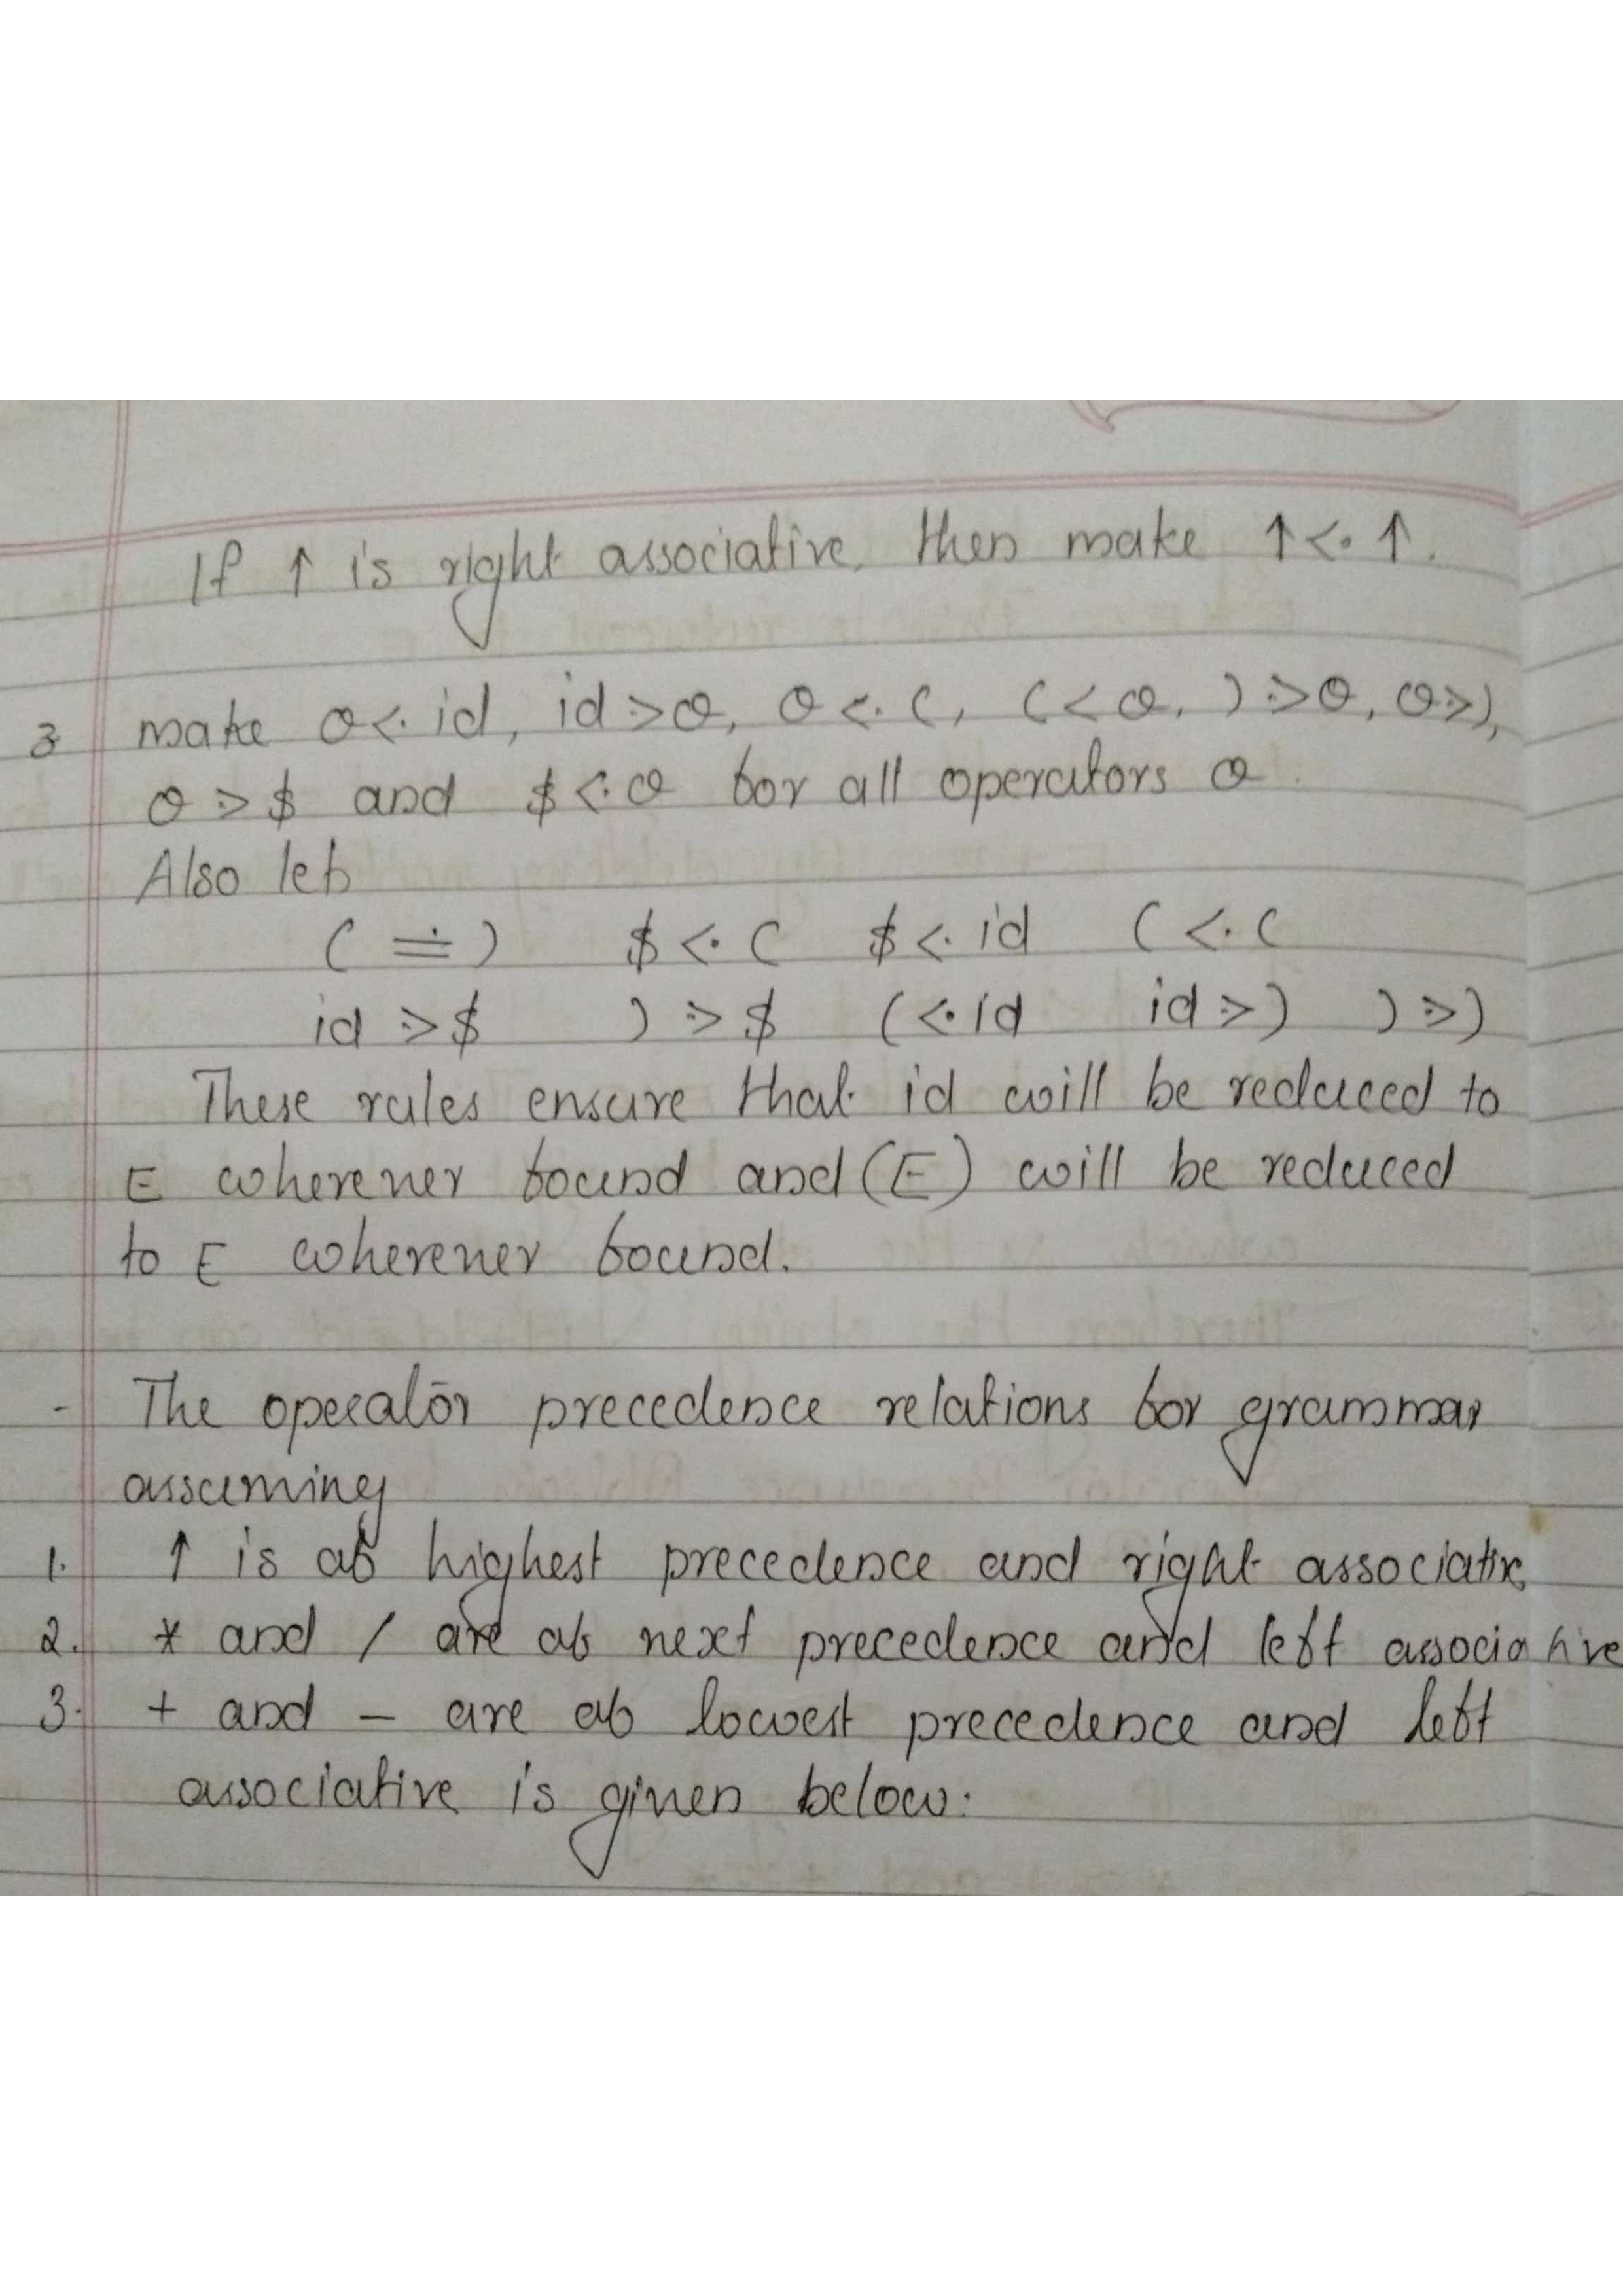 If ↑ is right associative, then make ↑ <· ↑.
3 make θ <· id, id ·> θ, θ <· (, ( <· θ, ) ·> θ, θ ·> ),
θ ·> $ and $ <· θ for all operators θ
Also let
( ≐ ) $ <· ( $ <· id ( <· (
id ·> $ ) ·> $ ( <· id id ·> ) ) ·> )
These rules ensure that id will be reduced to
E wherever found and (E) will be reduced
to E wherever found.
- The operator precedence relations for grammar
assuming
1. ↑ is of highest precedence and right associative
2. * and / are of next precedence and left associative
3. + and - are of lowest precedence and left
associative is given below: